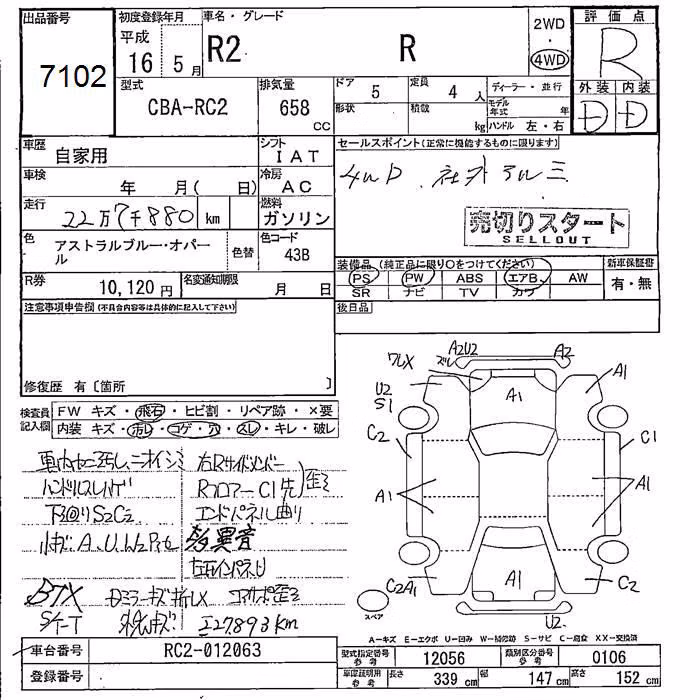 出品番号
7102
初度登録年月
平成
16 5月
車名・グレード
R2 R
2WD
・
4WD
評価点
R
外装 内装
D D
型式
CBA-RC2
排気量
658
CC
ドア
5
定員
4 人
ディーラー・並行
形状
積載
kg
モデル
年式
年
ハンドル 左・右
車歴
自家用
シフト
IAT
セールスポイント(正常に機能するものに限ります)
4WD 社外アルミ
車検
年 月( 日)
冷房
AC
走行
22万7千880 km
燃料
ガソリン
売切りスタート
SELLOUT
色
アストラルブルー・オパール
色替
色コード
43B
装備品(純正品に限り○をつけてください)
PS PW ABS エアB AW
SR ナビ TV カワ
新車保証書
有・無
R券
10,120 円
名変通知期限
月 日
注意事項申告欄(不具合内容等は具体的に記入して下さい)
後日品
修復歴 有〔箇所 〕
検査員
記入欄
FW キズ・飛石・ヒビ割・リペア跡・×要
内装 キズ・汚レ・コゲ・穴・スレ・キレ・破レ
ワレX
ズレ
A2U2
A2
A1
A1
U2
S1
C2
C1
A1
A1
A1
C2A1
C2
U2
スペア
右Rサイドメンバー
RフロアーC1先
歪ミ
ハンドルスレハゲ
下回りS2C2
エンドパネル曲り
異音
BTX
S/T-T
27893km
A-キズ E-エクボ U-凹み W-補修跡 S-サビ C-腐食 XX-交換済
車台番号
RC2-012063
登録番号
型式指定番号
参考
12056
類別区分番号
参考
0106
車庫証明用
参考
長さ
339 cm
幅
147 cm
高さ
152 cm